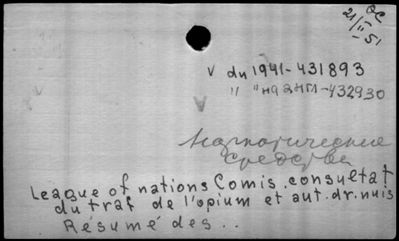 ОС
21/II 51
v du 1941-431893
" "на англ-432930
v
Наркотические
средства
League of nations Comis. consultat
du traf de l'opium et aut. dr. nuis
Résumé des..